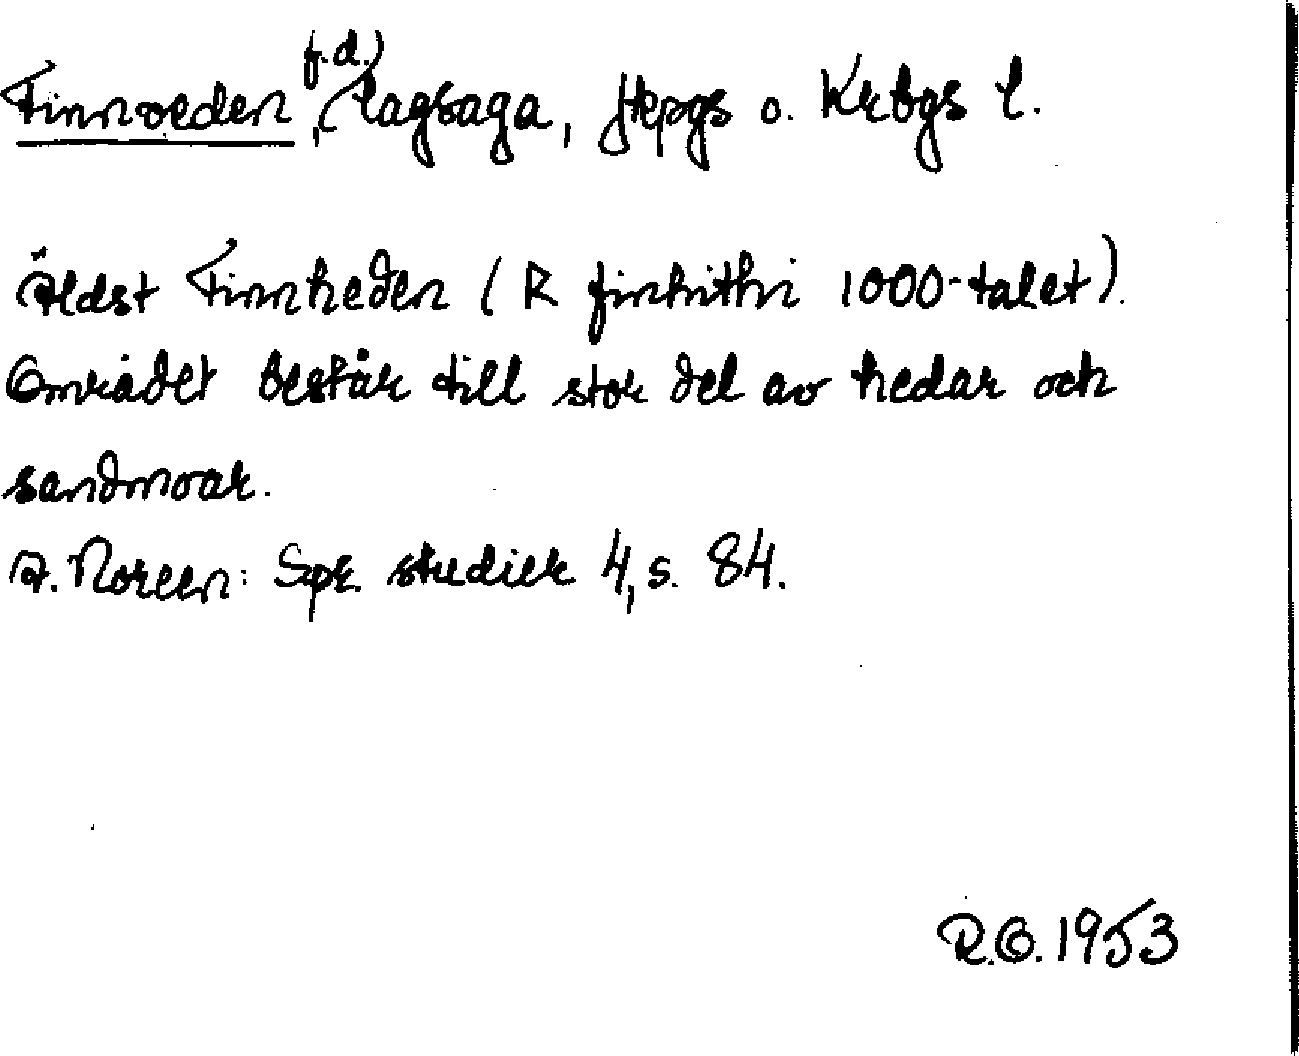 Finnveden, (f.d.) lagsaga, Jkpgs o. Krbgs l.
Äldst Finnheden (R finhithi 1000-talet).
Området består till stor del av hedar och
sandmoar.
A. Noreen: Spr. studier 4, s. 84.
R.O. 1953